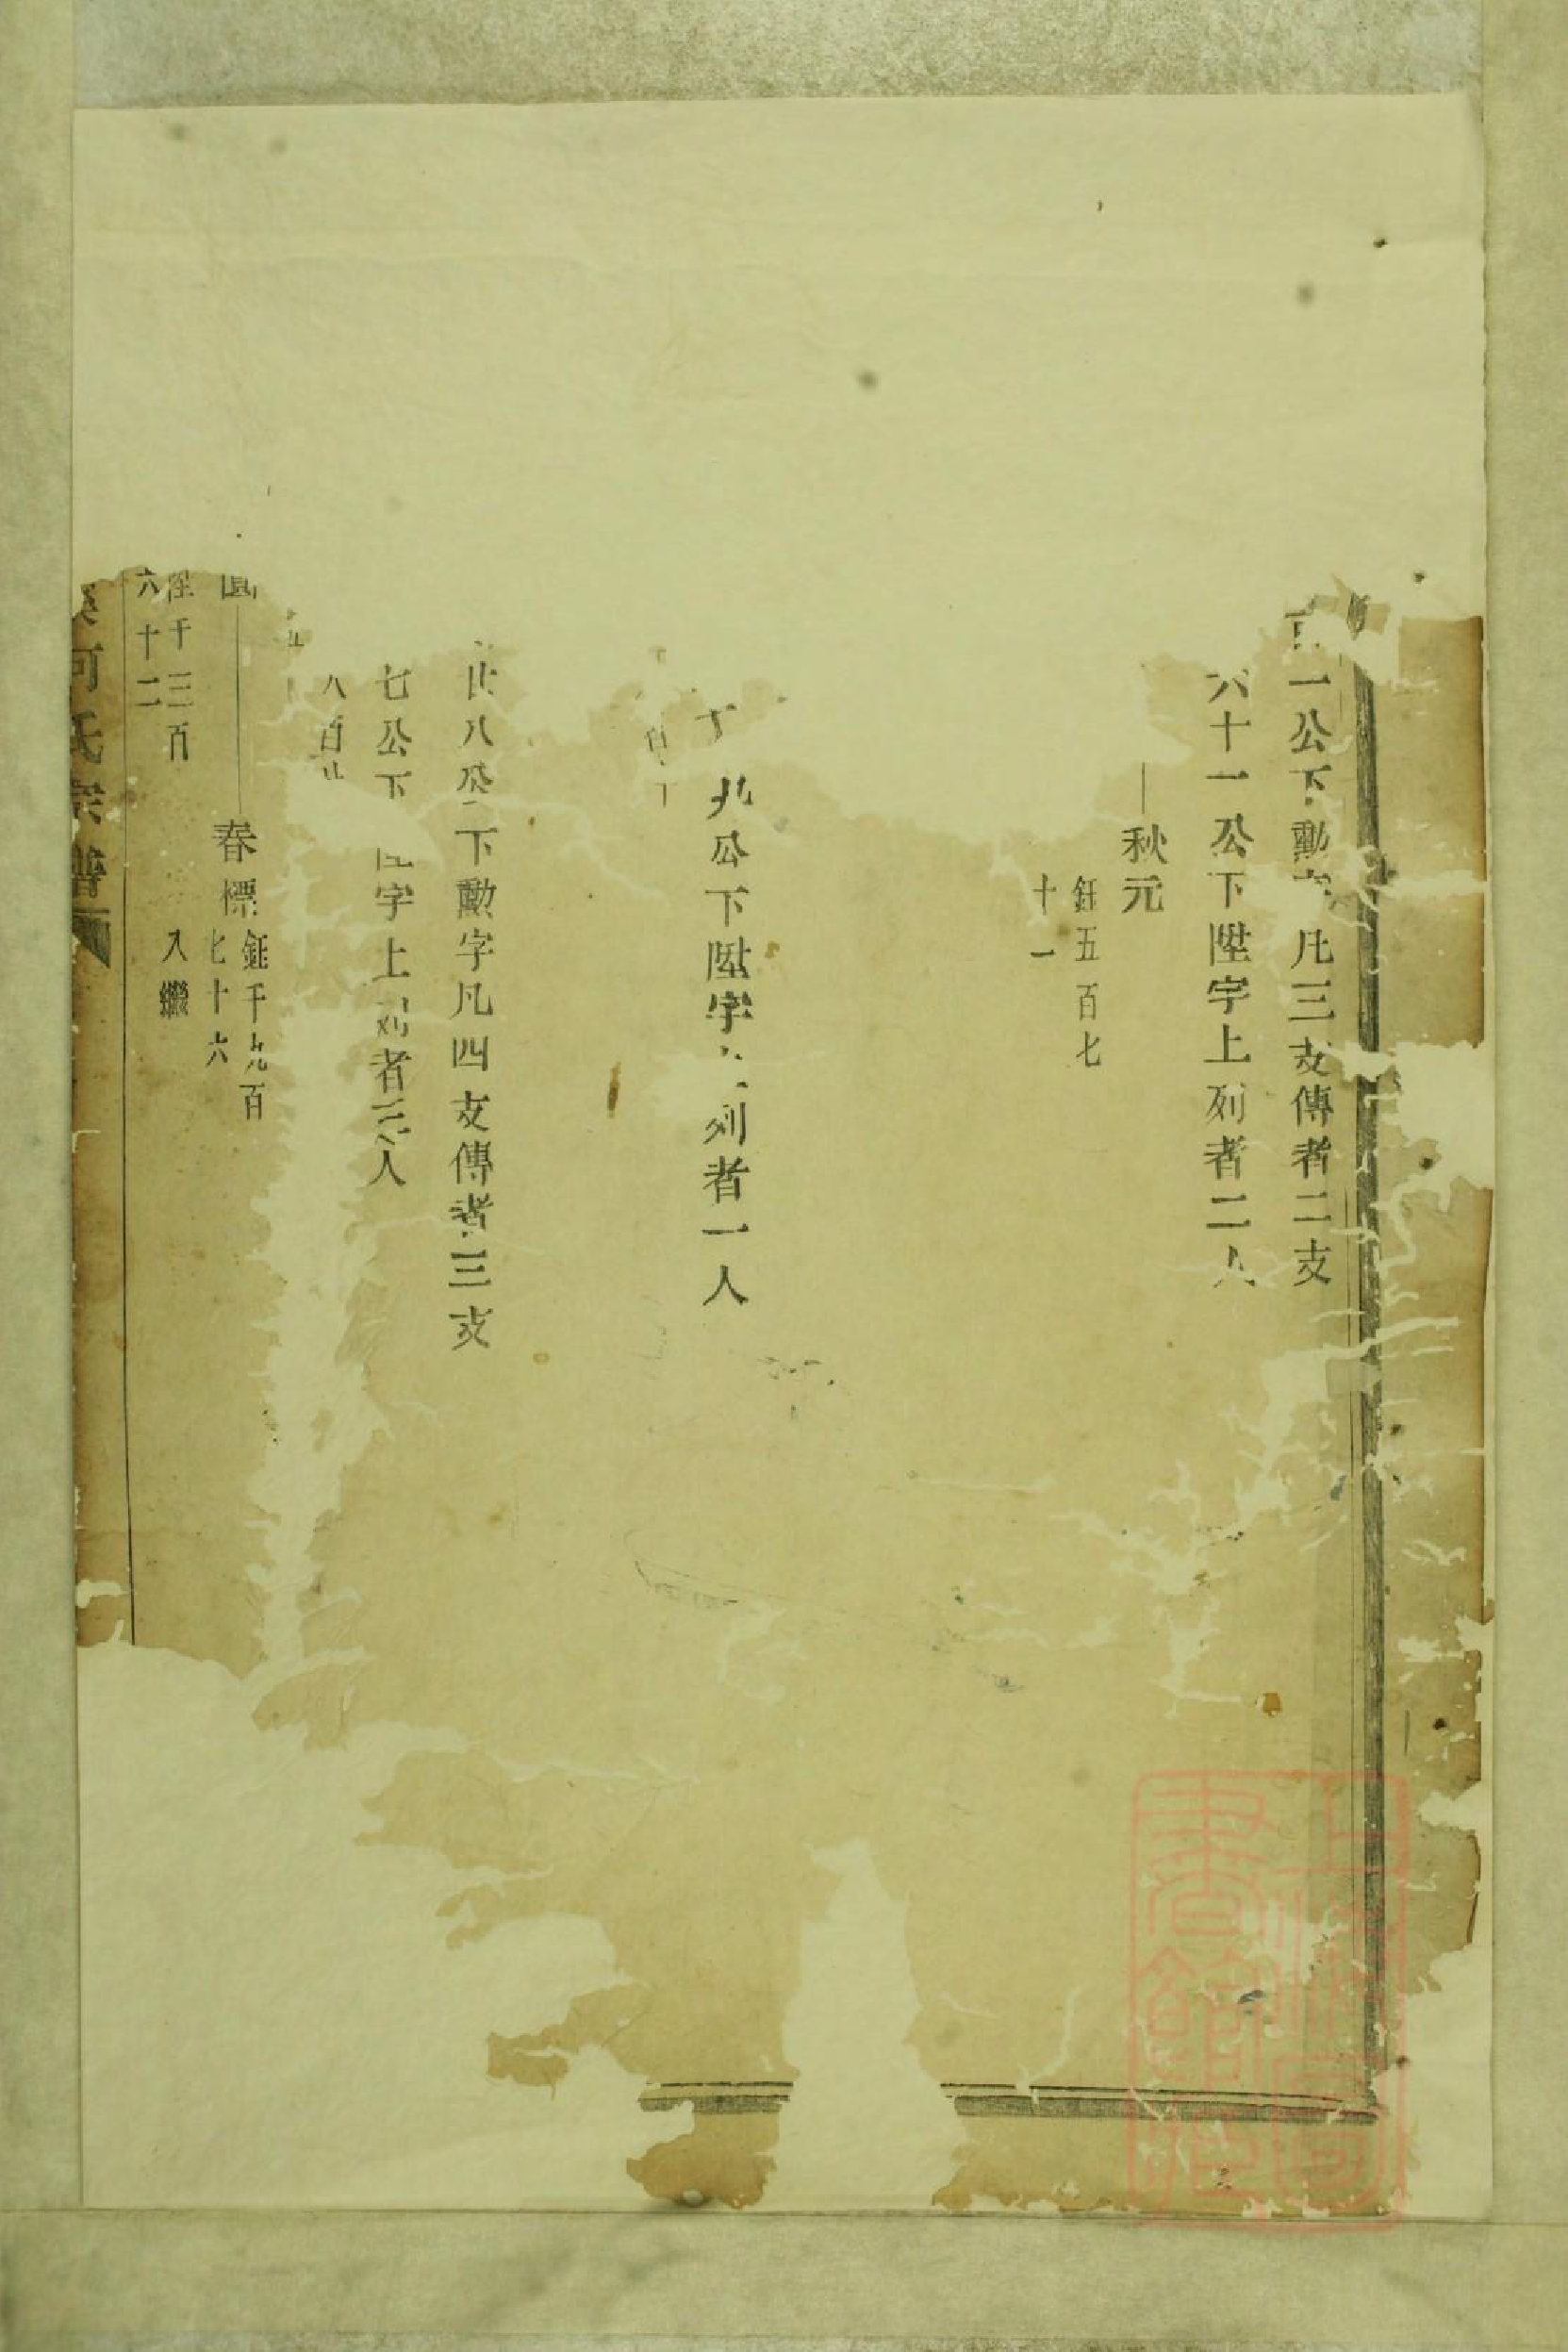 一公下勳字凡三支傳者二支
六十一公下陞字上列者二人
秋元
鈺五百七
十一
九公下陞字 列者一人
世八公下勳字凡四支傳者三支
七公下 字上列者 人
八百
春標
鈺千九百
七十六
陞千三百
六十二
入繼
河氏宗譜
上海圖書館藏